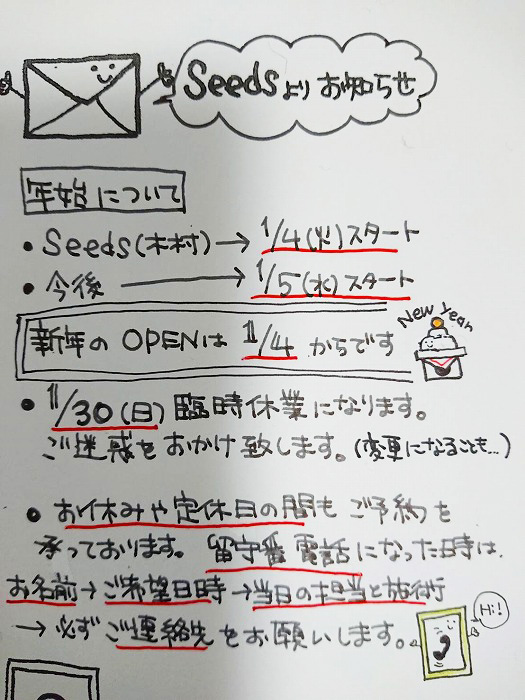 Seedsよりお知らせ
年始について
• Seeds(木村) → 1/4(火)スタート
• 今後 → 1/5(水)スタート
新年のOPENは 1/4 からです
New Year
• 1/30(日)臨時休業になります。
ご迷惑をおかけ致します。(変更になることも…)
• お休みや定休日の間もご予約を
承っております。留守番電話になった時は、
お名前→ご希望日時→当日の担当と施術
→必ずご連絡先をお願いします。
Hi!